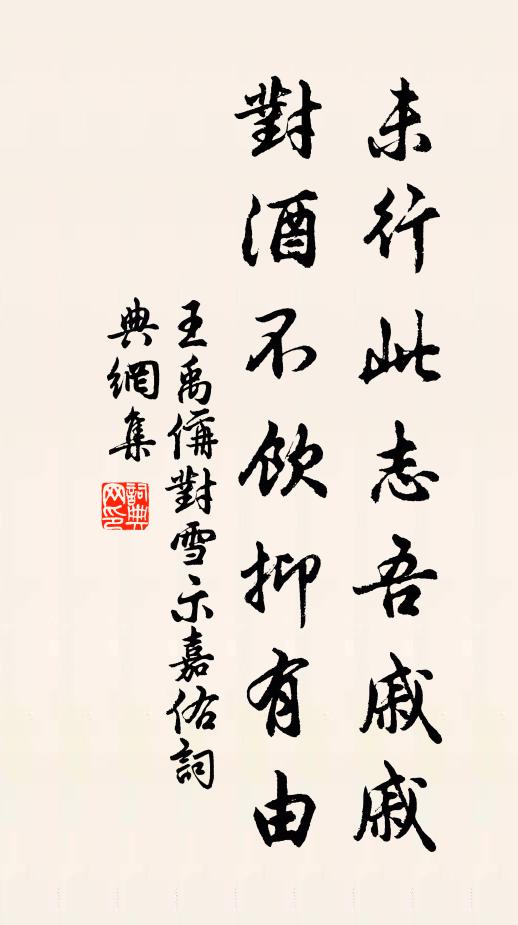 未行此志吾戚戚
對酒不飲抑有由
王禹偁對雪示嘉佑詞
典網集
詞典
网印